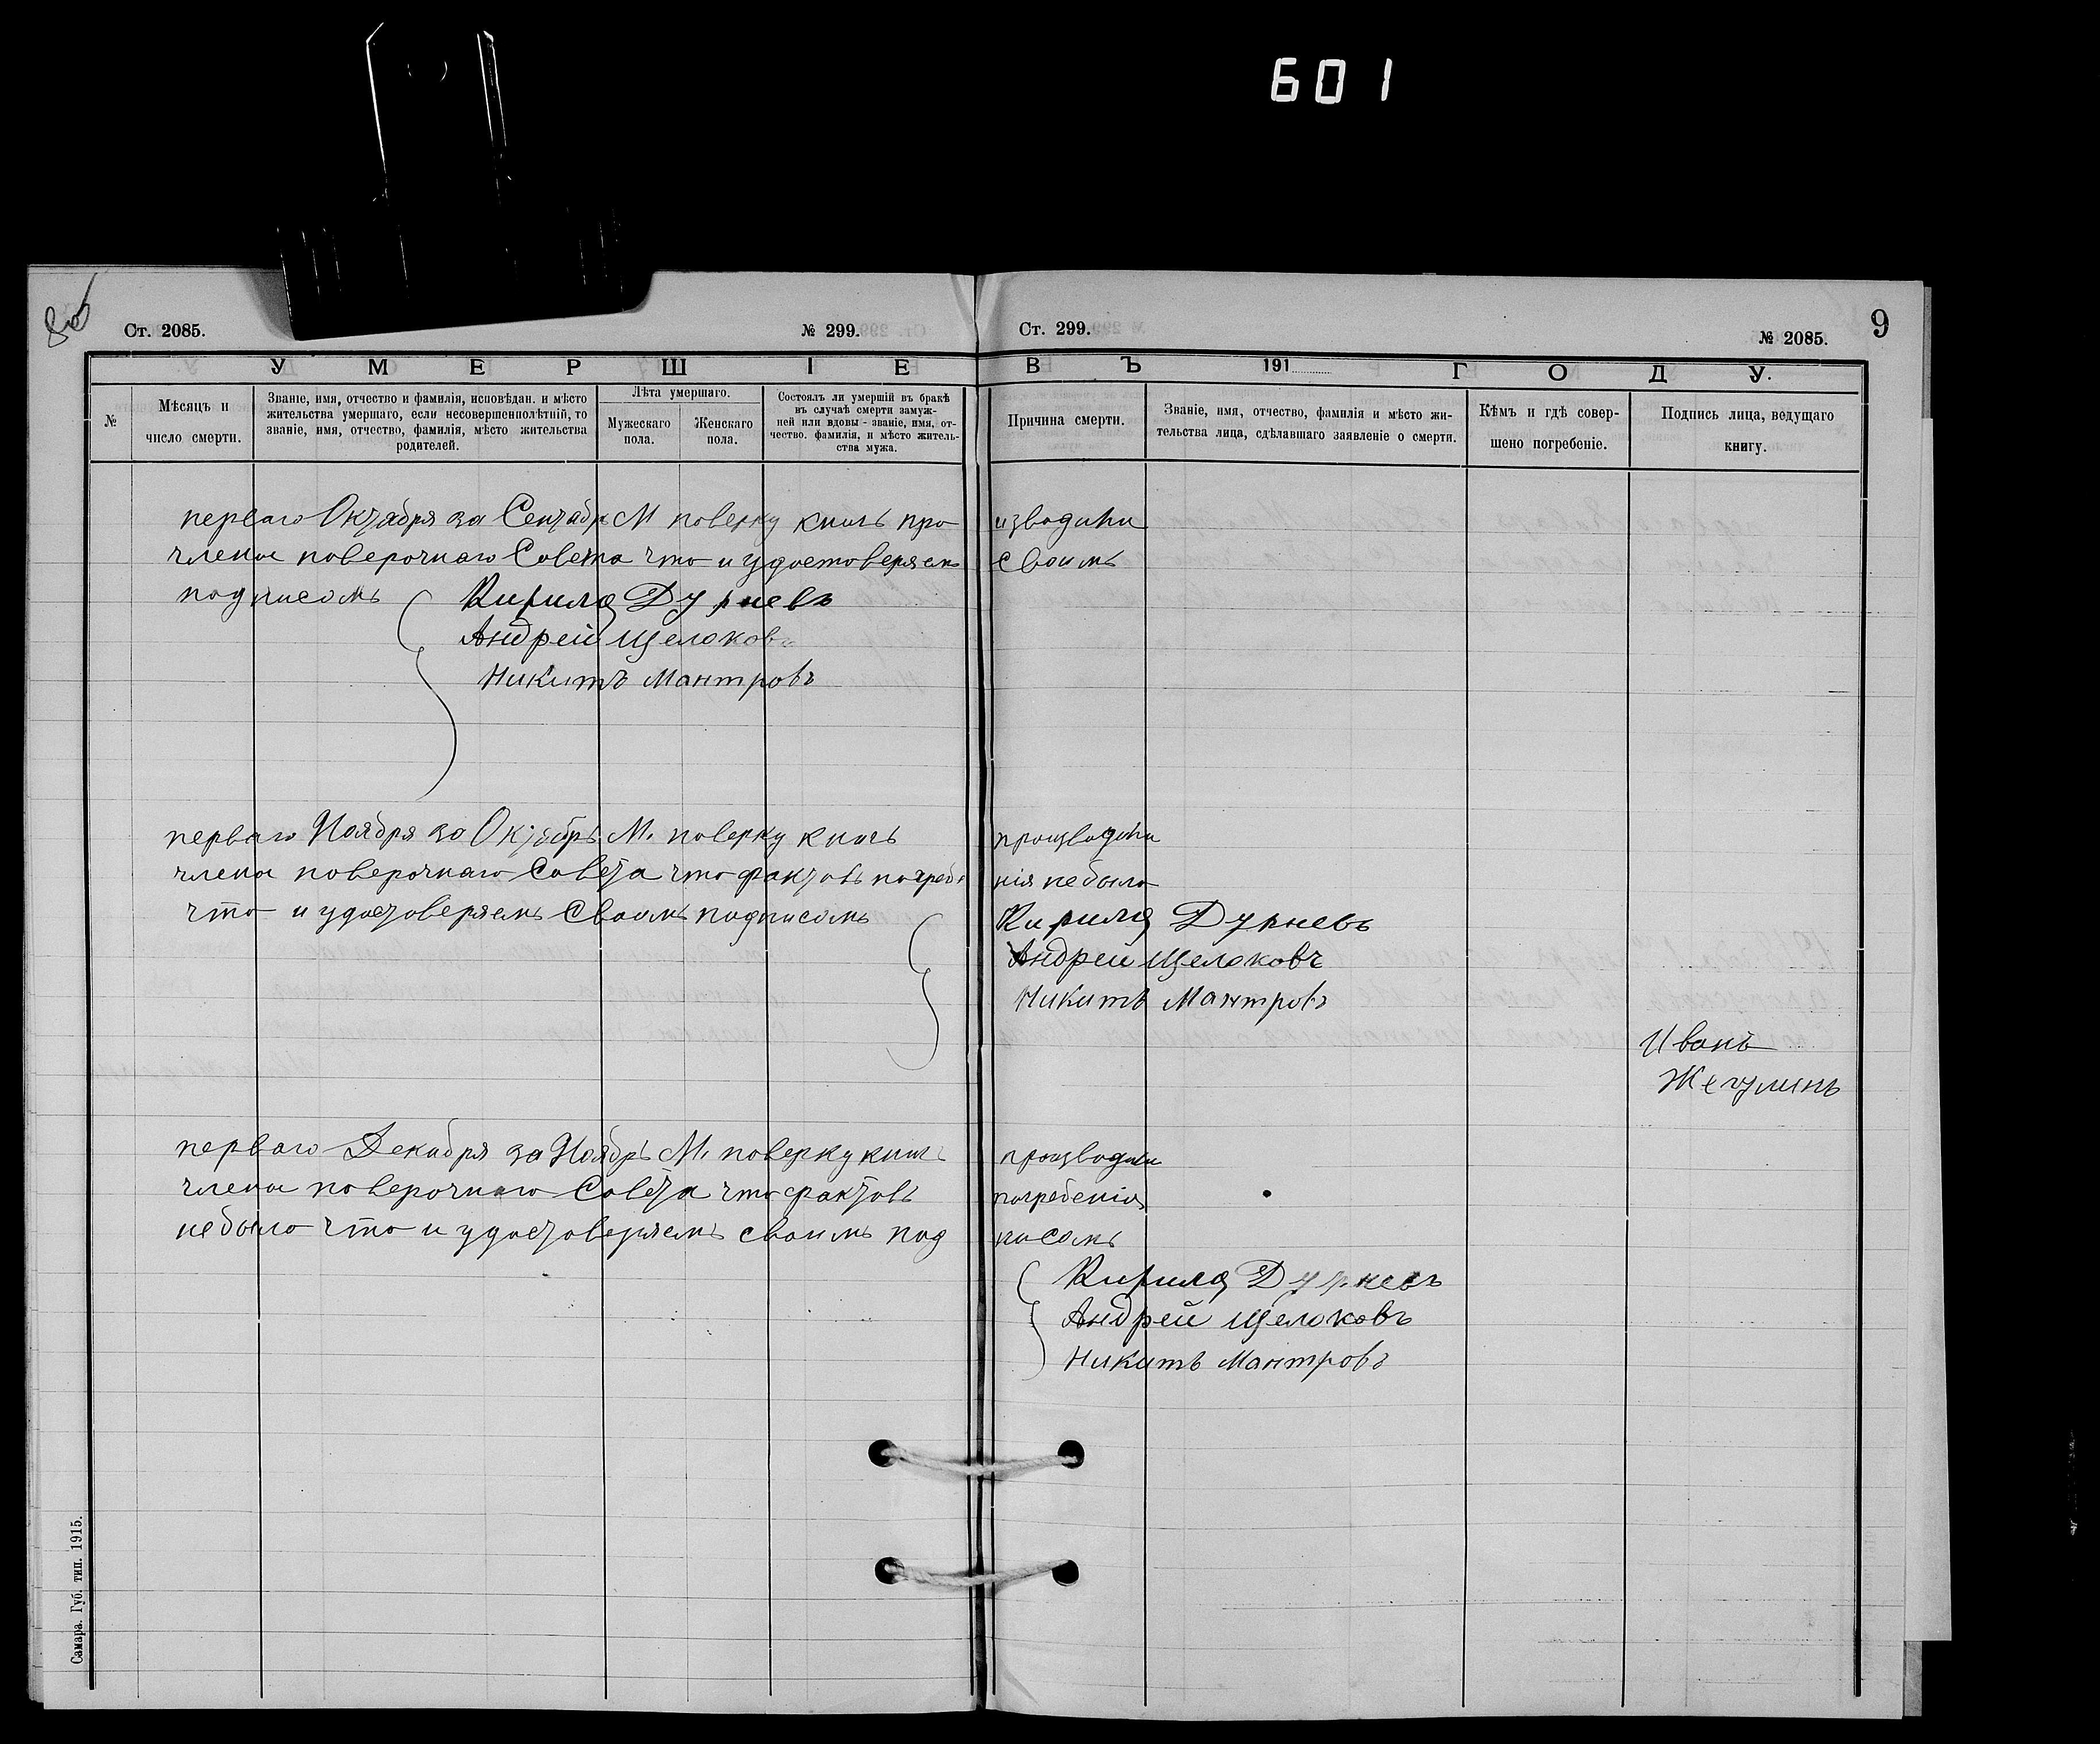 601
Ст. 2085.
№ 299.
Ст. 299.
№ 2085.
9
УМЕРШІЕ ВЪ 191 ГОДУ.
№
Мѣсяцъ и число смерти.
Званіе, имя, отчество и фамилія, исповѣдан. и мѣсто
жительства умершаго, если несовершеннолѣтній, то
званіе, имя, отчество, фамилія, мѣсто жительства
родителей.
Лѣта умершаго.
Мужескаго пола.
Женскаго пола.
Состоялъ ли умершій въ бракѣ
въ случаѣ смерти замуж-
ней или вдовы - званіе, имя, от-
чество. фамилія, и мѣсто житель-
ства мужа.
Причина смерти.
Званіе, имя, отчество, фамилія и мѣсто жи-
тельства лица, сдѣлавшаго заявленіе о смерти.
Кѣмъ и гдѣ совер-
шено погребеніе.
Подпись лица, ведущаго
книгу.
перваго Октября за Сентябр М поверку книгъ про изводили
члены поверочнаго Совета что и удостоверяемъ своимъ
подписомъ Кирила Дурневъ
Андрей Щелоковъ
Никитъ Мантровъ
перваго Ноября за Октябрь М. поверку книгъ производили
члены поверочнаго Совета что фактовъ погребе нія небыло
что и удостоверяемъ Своимъ подписомъ Кирила Дурневъ
Андрей Щелоковъ
Никитъ Мантровъ
Иванъ
Жегулинъ
перваго Декабря за Ноябрь М. поверку книгъ производили
члены поверочнаго Совета что фактовъ погребенія
небыло что и удостоверяемъ своимъ под писомъ
Кирила Дурневъ
Андрей Щелоковъ
Никитъ Мантровъ
Самара. Губ. тип. 1915.